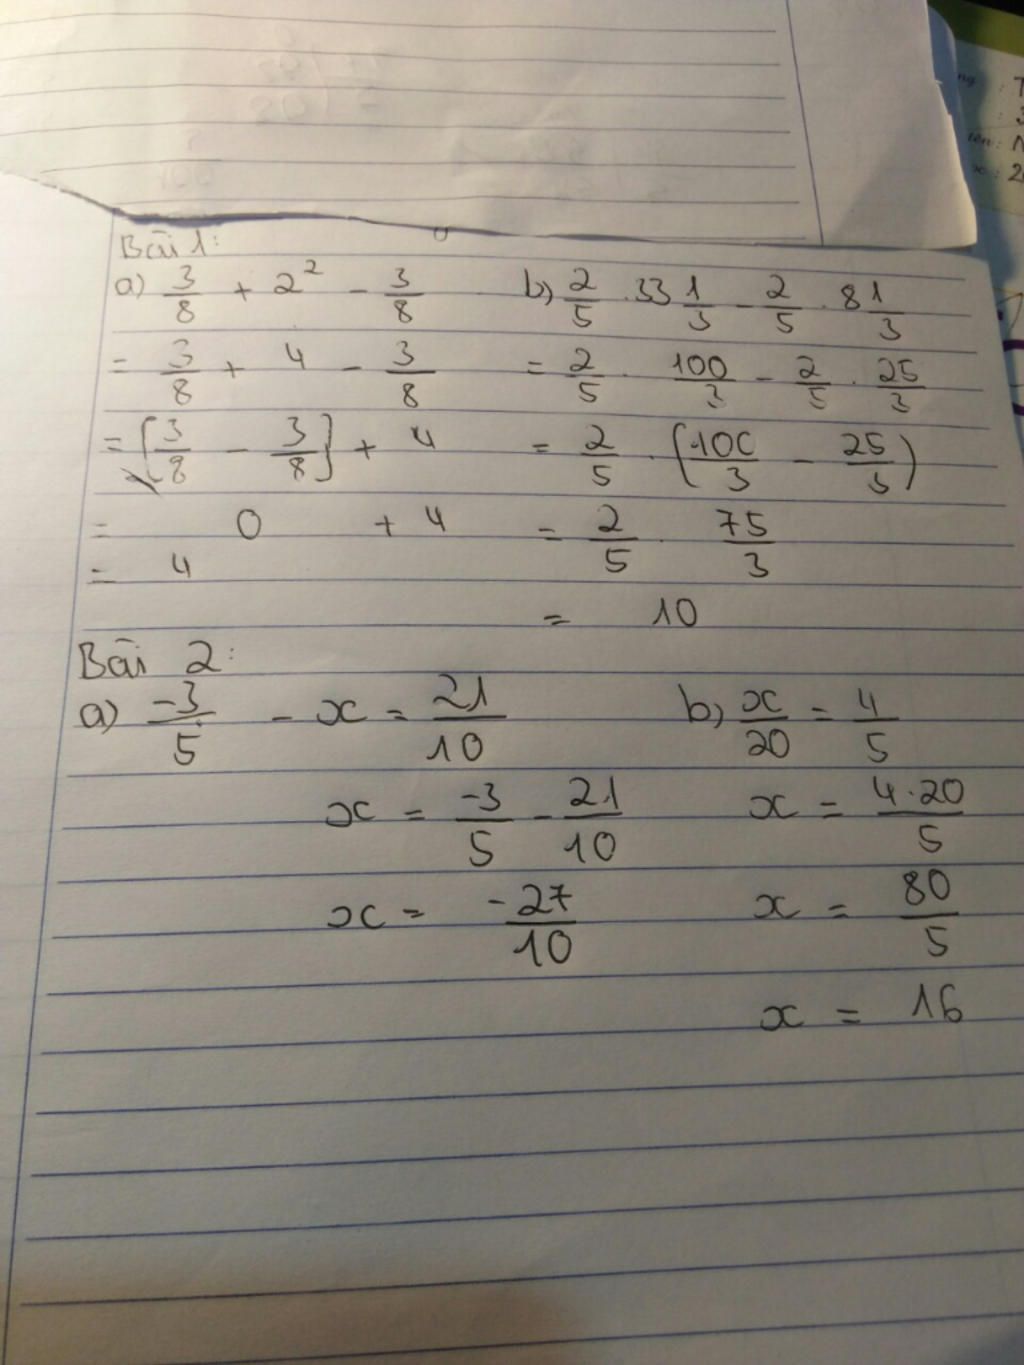 Bài 1:
a) 3/8 + 2² - 3/8
= 3/8 + 4 - 3/8
= [3/8 - 3/8] + 4
= 0 + 4
= 4
b) 2/5 . 33 1/3 - 2/5 . 8 1/3
= 2/5 . 100/3 - 2/5 . 25/3
= 2/5 . (100/3 - 25/3)
= 2/5 . 75/3
= 10
Bài 2:
a) -3/5 - x = 21/10
x = -3/5 - 21/10
x = -27/10
b) x/20 = 4/5
x = 4.20/5
x = 80/5
x = 16